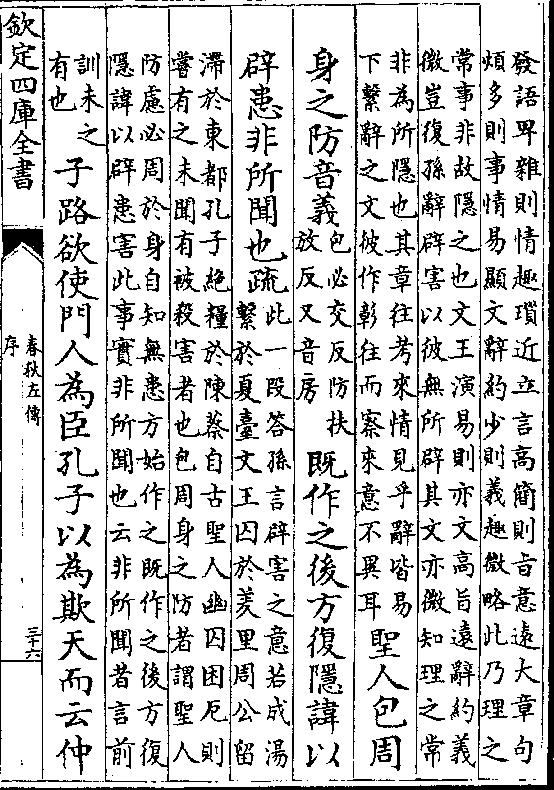 發語卑雜則情趣瑣近立言高簡則旨意遠大章句
煩多則事情易顯文辭約少則義趣微略此乃理之
常事非故隱之也文王演易則亦文高旨遠辭約義
微豈復孫辭辟害以彼無所辟其文亦微知理之常
非為所隱也其章往考來情見乎辭皆易
下繫辭之文彼作彰往而察來意不異耳
聖人包周
身之防音義
包必交反防扶
放反又音房
既作之後方復隱諱以
辟患非所聞也疏
此一段答孫言辟害之意若成湯
繫於夏臺文王囚於羑里周公留
滯於東都孔子絕糧於陳蔡自古聖人幽囚困厄則
嘗有之未聞有被殺害者也包周身之防者謂聖人
防慮必周於身自知無患方始作之既作之後方復
隱諱以辟患害此事實非所聞也云非所聞者言前
訓未之
有也
子路欲使門人為臣孔子以為欺天而云仲
欽定四庫全書
春秋左傳
序
三十六